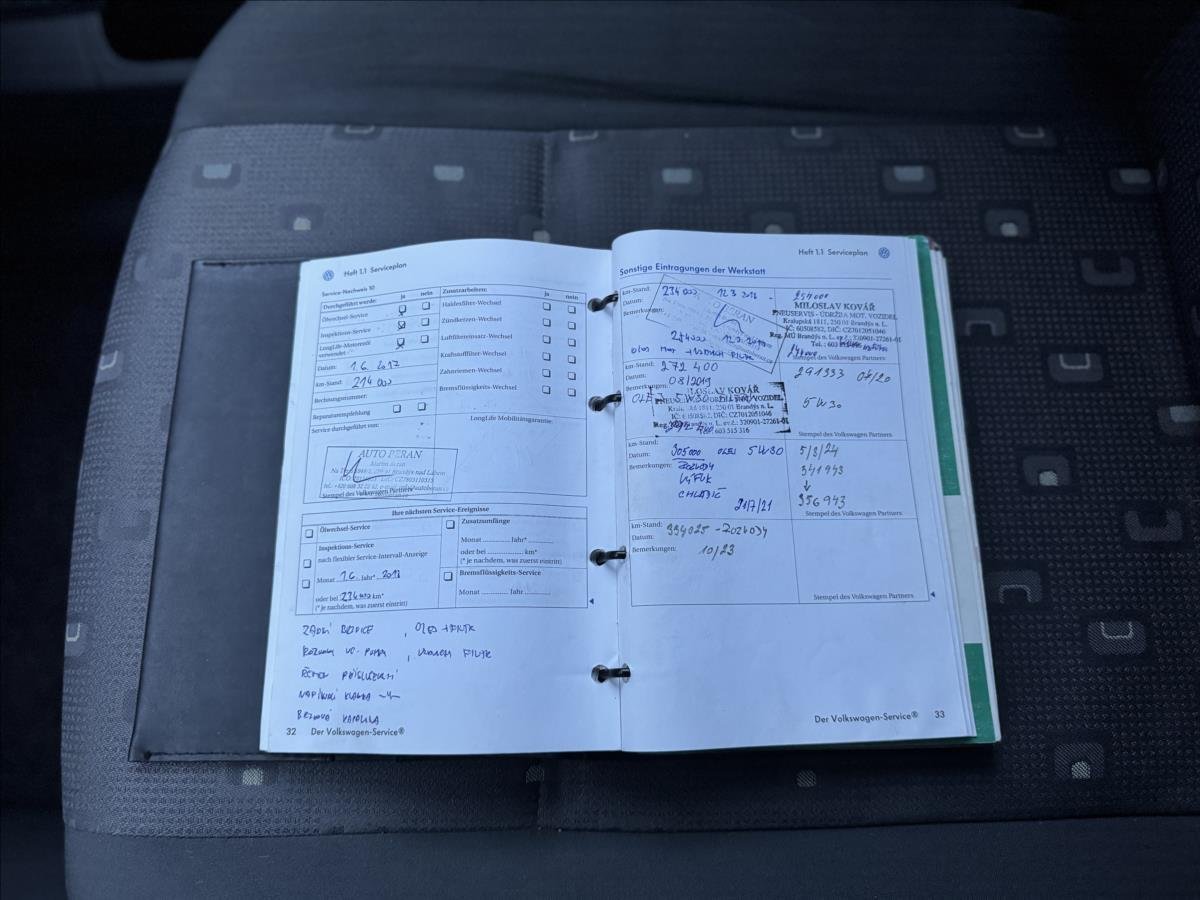 Heft 1.1 Serviceplan
Service-Nachweis 10
Durchgeführt wurde: ja nein
Ölwechsel-Service
Inspektions-Service
LongLife-Motorenöl
verwendet
Datum: 1.6. 2017
km-Stand: 214 000
Rechnungsnummer:
Reparaturempfehlung
Service durchgeführt von:
AUTO BERAN
Stempel des Volkswagen Partners
Zusatzarbeiten: ja nein
Haldexfilter-Wechsel
Zündkerzen-Wechsel
Luftfiltereinsatz-Wechsel
Kraftstofffilter-Wechsel
Zahnriemen-Wechsel
Bremsflüssigkeits-Wechsel
LongLife Mobilitätsgarantie:
Ihre nächsten Service-Ereignisse
Ölwechsel-Service
Inspektions-Service
nach flexibler Service-Intervall-Anzeige
Monat 1.6. Jahr* 2018
oder bei 234 000 km*
(* je nachdem, was zuerst eintritt)
Zusatzumfänge
Monat Jahr*
oder bei km*
(* je nachdem, was zuerst eintritt)
Bremsflüssigkeits-Service
Monat Jahr
ROZVODY VO. PUMPA
ŘEMEN PŘÍSLUŠENSTVÍ
NAPÍNACÍ KLADKA
BRZDOVÁ KAPALINA
32 Der Volkswagen-Service®
Heft 1.1 Serviceplan
Sonstige Eintragungen der Werkstatt
km-Stand: 234 000 12.3 2018
Datum:
Bemerkungen:
BERAN
254000
MILOSLAV KOVÁŘ
PNEUSERVIS - ÚDRŽBA MOT. VOZIDEL
Kralupská 1811, 250 01 Brandýs n. L.
IČ: 60508582, DIČ: CZ7012051046
Reg. MÚ Brandýs n. L., ev.č.: 320901-27261-01
Stempel des Volkswagen Partners
km-Stand: 272 400
Datum: 08/2019
Bemerkungen:
OLEJ 5W30
MILOSLAV KOVÁŘ
PNEUSERVIS - ÚDRŽBA MOT. VOZIDEL
Kralupská 1811, 250 01 Brandýs n. L.
IČ: 60508582, DIČ: CZ7012051046
Reg. 320901-27261-01
603 515 316
291333 07/20
5W30
Stempel des Volkswagen Partners
km-Stand:
Datum: 305000 OLEJ 5W30
Bemerkungen: ROZVODY
VÝFUK
CHLADIČ
21/7/21
5/8/24
341943
↓
356943
Stempel des Volkswagen Partners
km-Stand: 334025 - ROZVODY
Datum:
Bemerkungen: 10/23
Stempel des Volkswagen Partners
Der Volkswagen-Service® 33